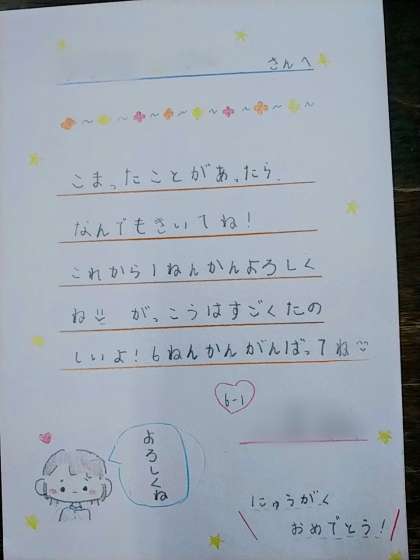 さんへ
こまったことがあったら、
なんでもきいてね！
これから1ねんかんよろしく
ね がっこうはすごくたの
しいよ！6ねんかんがんばってね
6-1
よろしくね
にゅうがく
おめでとう！